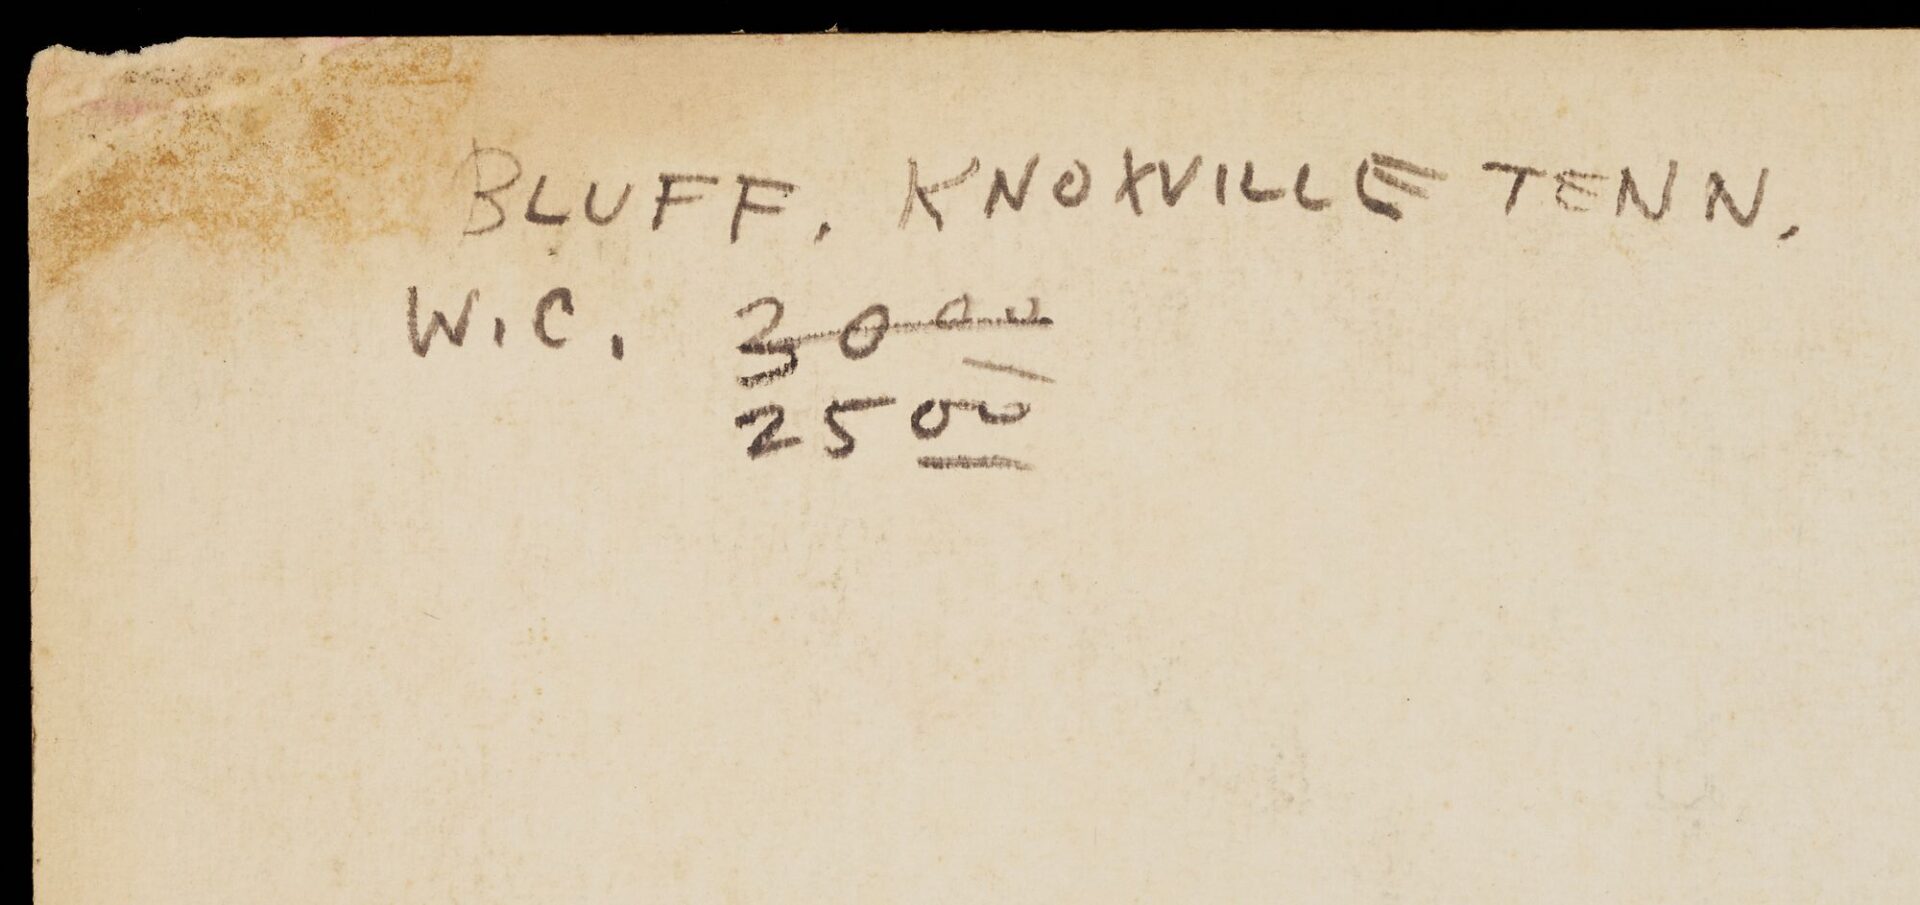 BLUFF, KNOXVILLE TENN.
W.C. 3000
2500